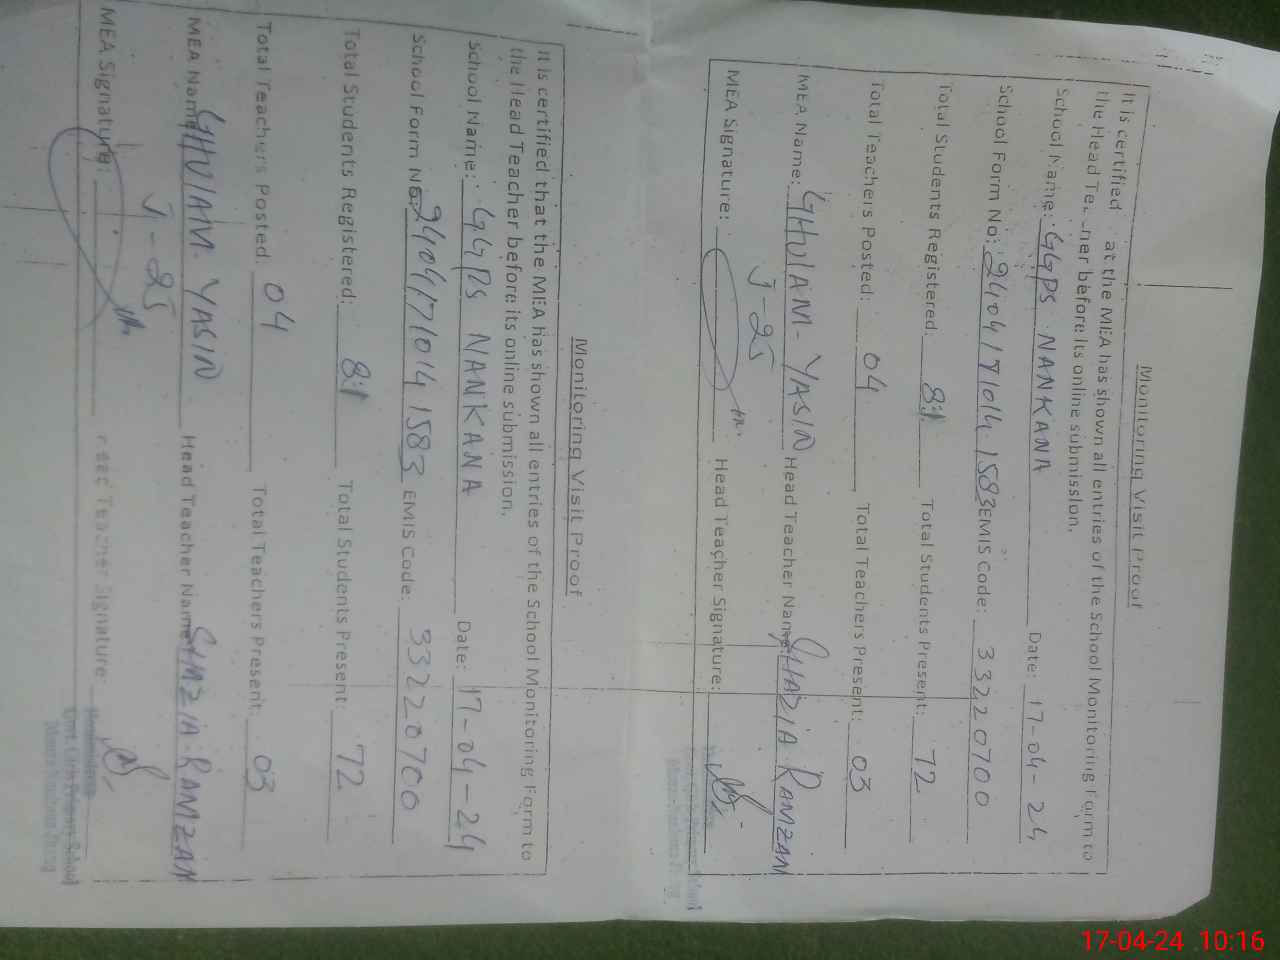 Monitoring Visit Proof
It is certified at the MEA has shown all entries of the School Monitoring Form to
the Head before its online submission.
School Name: GGPS NANKANA Date: 17-04-24
School Form No: 2404171014 1583 EMIS Code: 33220700
Total Students Registered: 81 Total Students Present: 72
Total Teachers Posted: 04 Total Teachers Present: 03
MEA Name: GHULAM YASIN Head Teacher Name: SHAZIA RAMZAN
J-25
MEA Signature: Head Teacher Signature:
Monitoring Visit Proof
It is certified that the MEA has shown all entries of the School Monitoring Form to
the Head Teacher before its online submission.
School Name: GGPS NANKANA Date: 17-04-24
School Form No: 2404171014 1583 EMIS Code: 33220700
Total Students Registered: 81 Total Students Present: 72
Total Teachers Posted: 04 Total Teachers Present: 03
MEA Name GHULAM YASIN Head Teacher Name SHAZIA RAMZAN
J-25
MEA Signature: Head Teacher Signature:
17-04-24 10:16